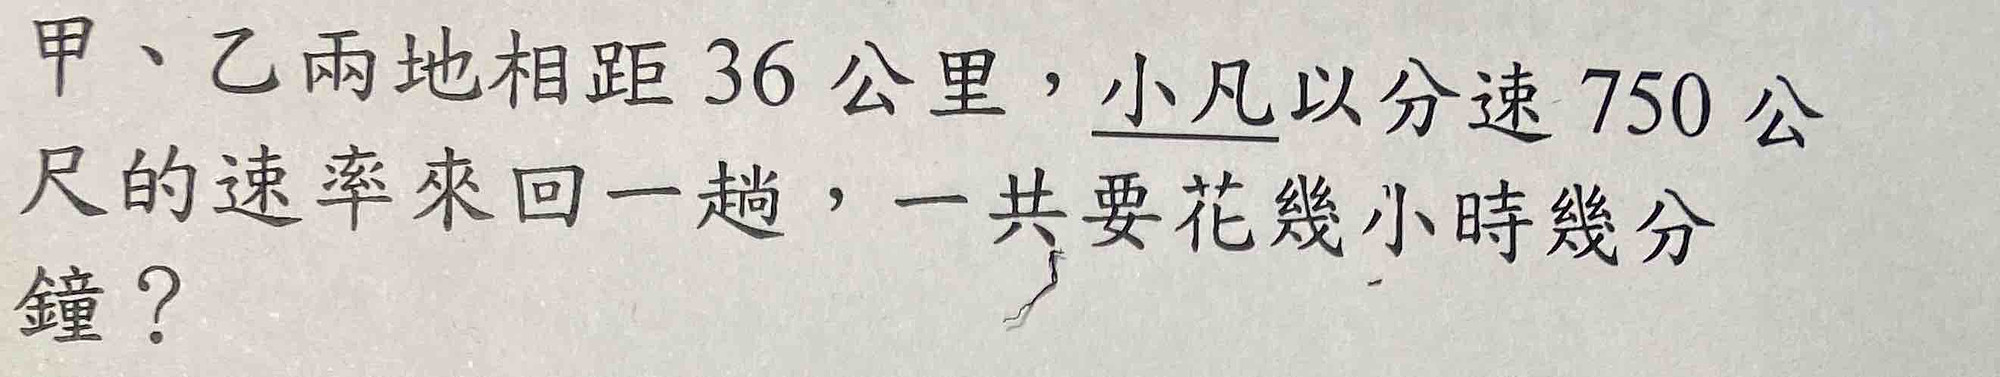 甲、乙兩地相距 36 公里，小凡以分速 750 公
尺的速率來回一趟，一共要花幾小時幾分
鐘？